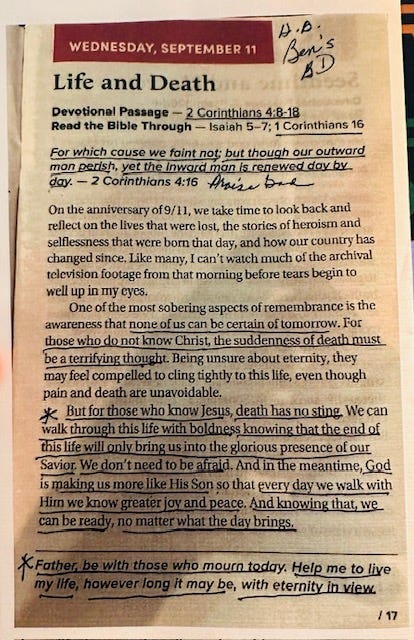 WEDNESDAY, SEPTEMBER 11
H.B.
Ben's
BD
Life and Death
Devotional Passage — 2 Corinthians 4:8-18
Read the Bible Through — Isaiah 5–7; 1 Corinthians 16
For which cause we faint not; but though our outward
man perish, yet the inward man is renewed day by
day. — 2 Corinthians 4:16 Praise God
On the anniversary of 9/11, we take time to look back and
reflect on the lives that were lost, the stories of heroism and
selflessness that were born that day, and how our country has
changed since. Like many, I can't watch much of the archival
television footage from that morning before tears begin to
well up in my eyes.
One of the most sobering aspects of remembrance is the
awareness that none of us can be certain of tomorrow. For
those who do not know Christ, the suddenness of death must
be a terrifying thought. Being unsure about eternity, they
may feel compelled to cling tightly to this life, even though
pain and death are unavoidable.
But for those who know Jesus, death has no sting. We can
walk through this life with boldness knowing that the end of
this life will only bring us into the glorious presence of our
Savior. We don't need to be afraid. And in the meantime, God
is making us more like His Son so that every day we walk with
Him we know greater joy and peace. And knowing that, we
can be ready, no matter what the day brings.
Father, be with those who mourn today. Help me to live
my life, however long it may be, with eternity in view.
/ 17